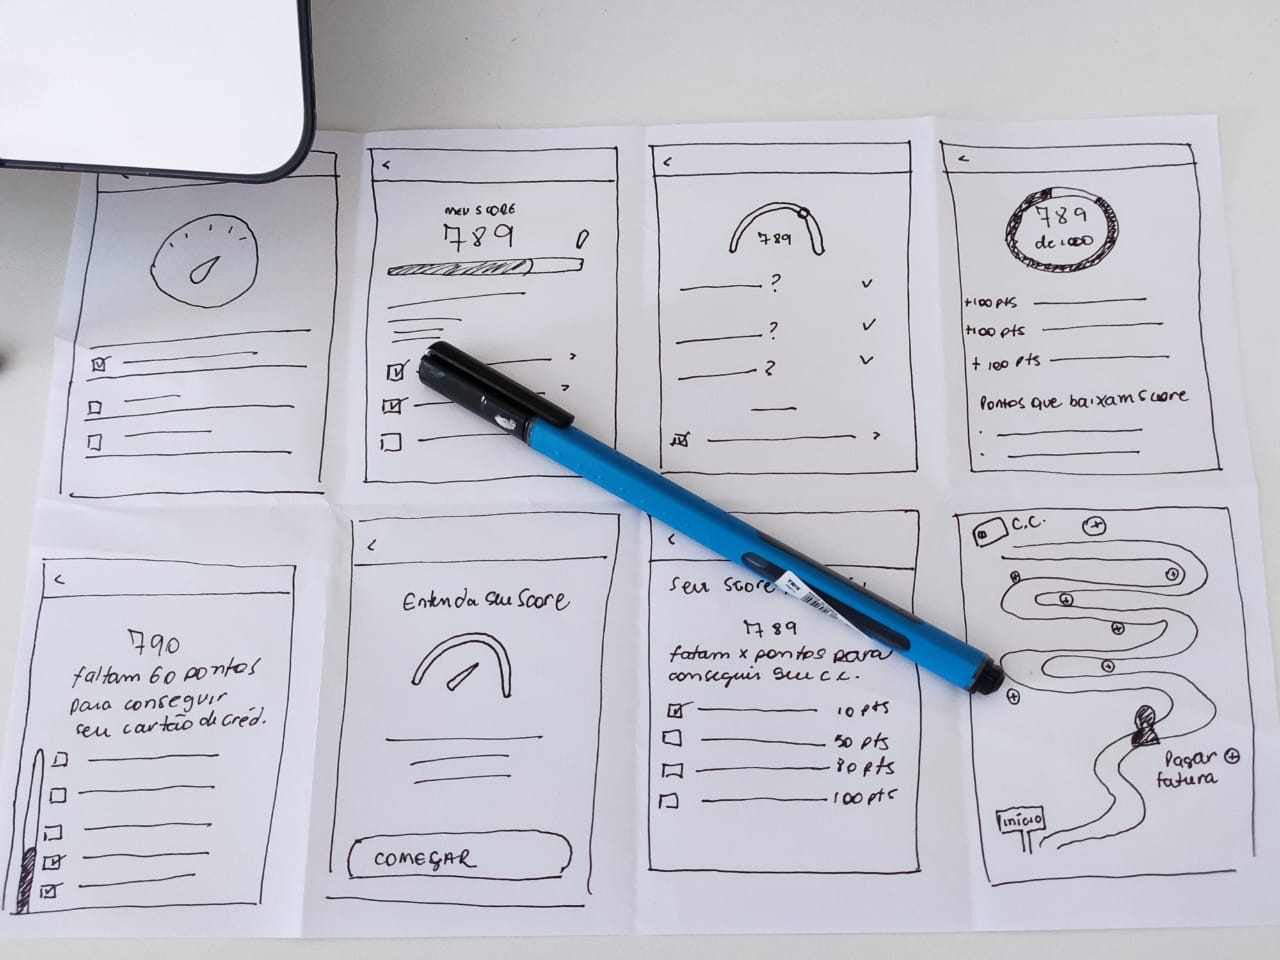 MEU SCORE
789
789
789
de 1000
+100 pts
+100 pts
+ 100 pts
Pontos que baixam score
790
faltam 60 pontos
para conseguir
seu cartão de créd.
Entenda seu Score
COMEÇAR
Seu score
789
fatam x pontos para
conseguir seu c.c.
10 pts
50 pts
80 pts
100 pts
C.C.
Pagar
fatura
início